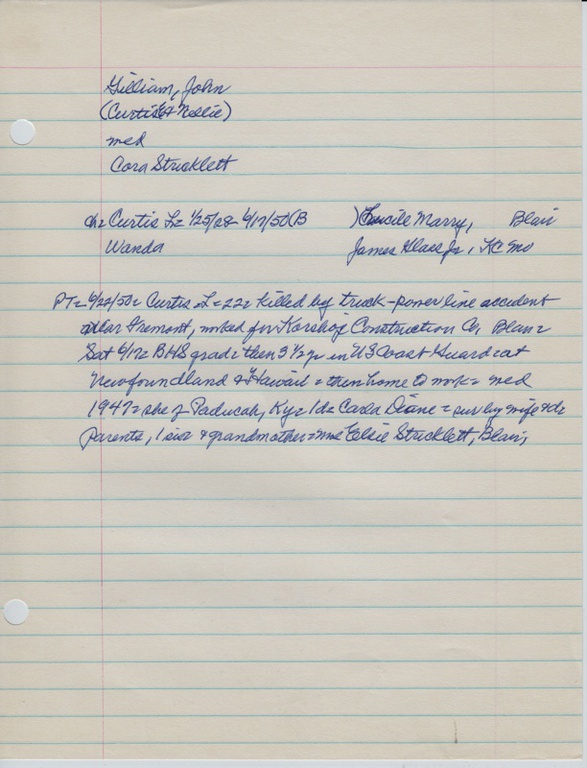 Gilliam, John
(Curtis & Nellie)
med
Cora Stricklett
ch= Curtis L= 1/25/28 6/17/50(B )Lucile Marry, Blair
Wanda James Glass Jr, KC Mo
PT= 6/22/50= Curtis L=22= killed by truck-power line accident
near Fremont, worked for Korshoj Construction Co Blair=
Sat 6/17= BHS grad= then 3 1/2 yr in US Coast Guard= at
Newfoundland & Hawaii= then home to work= med
1947= she of Paducah, Ky= 1d= Carla Diane= sur by wife & d=
parents, 1 sis & grandmother= Mrs Elsie Stricklett, Blair,